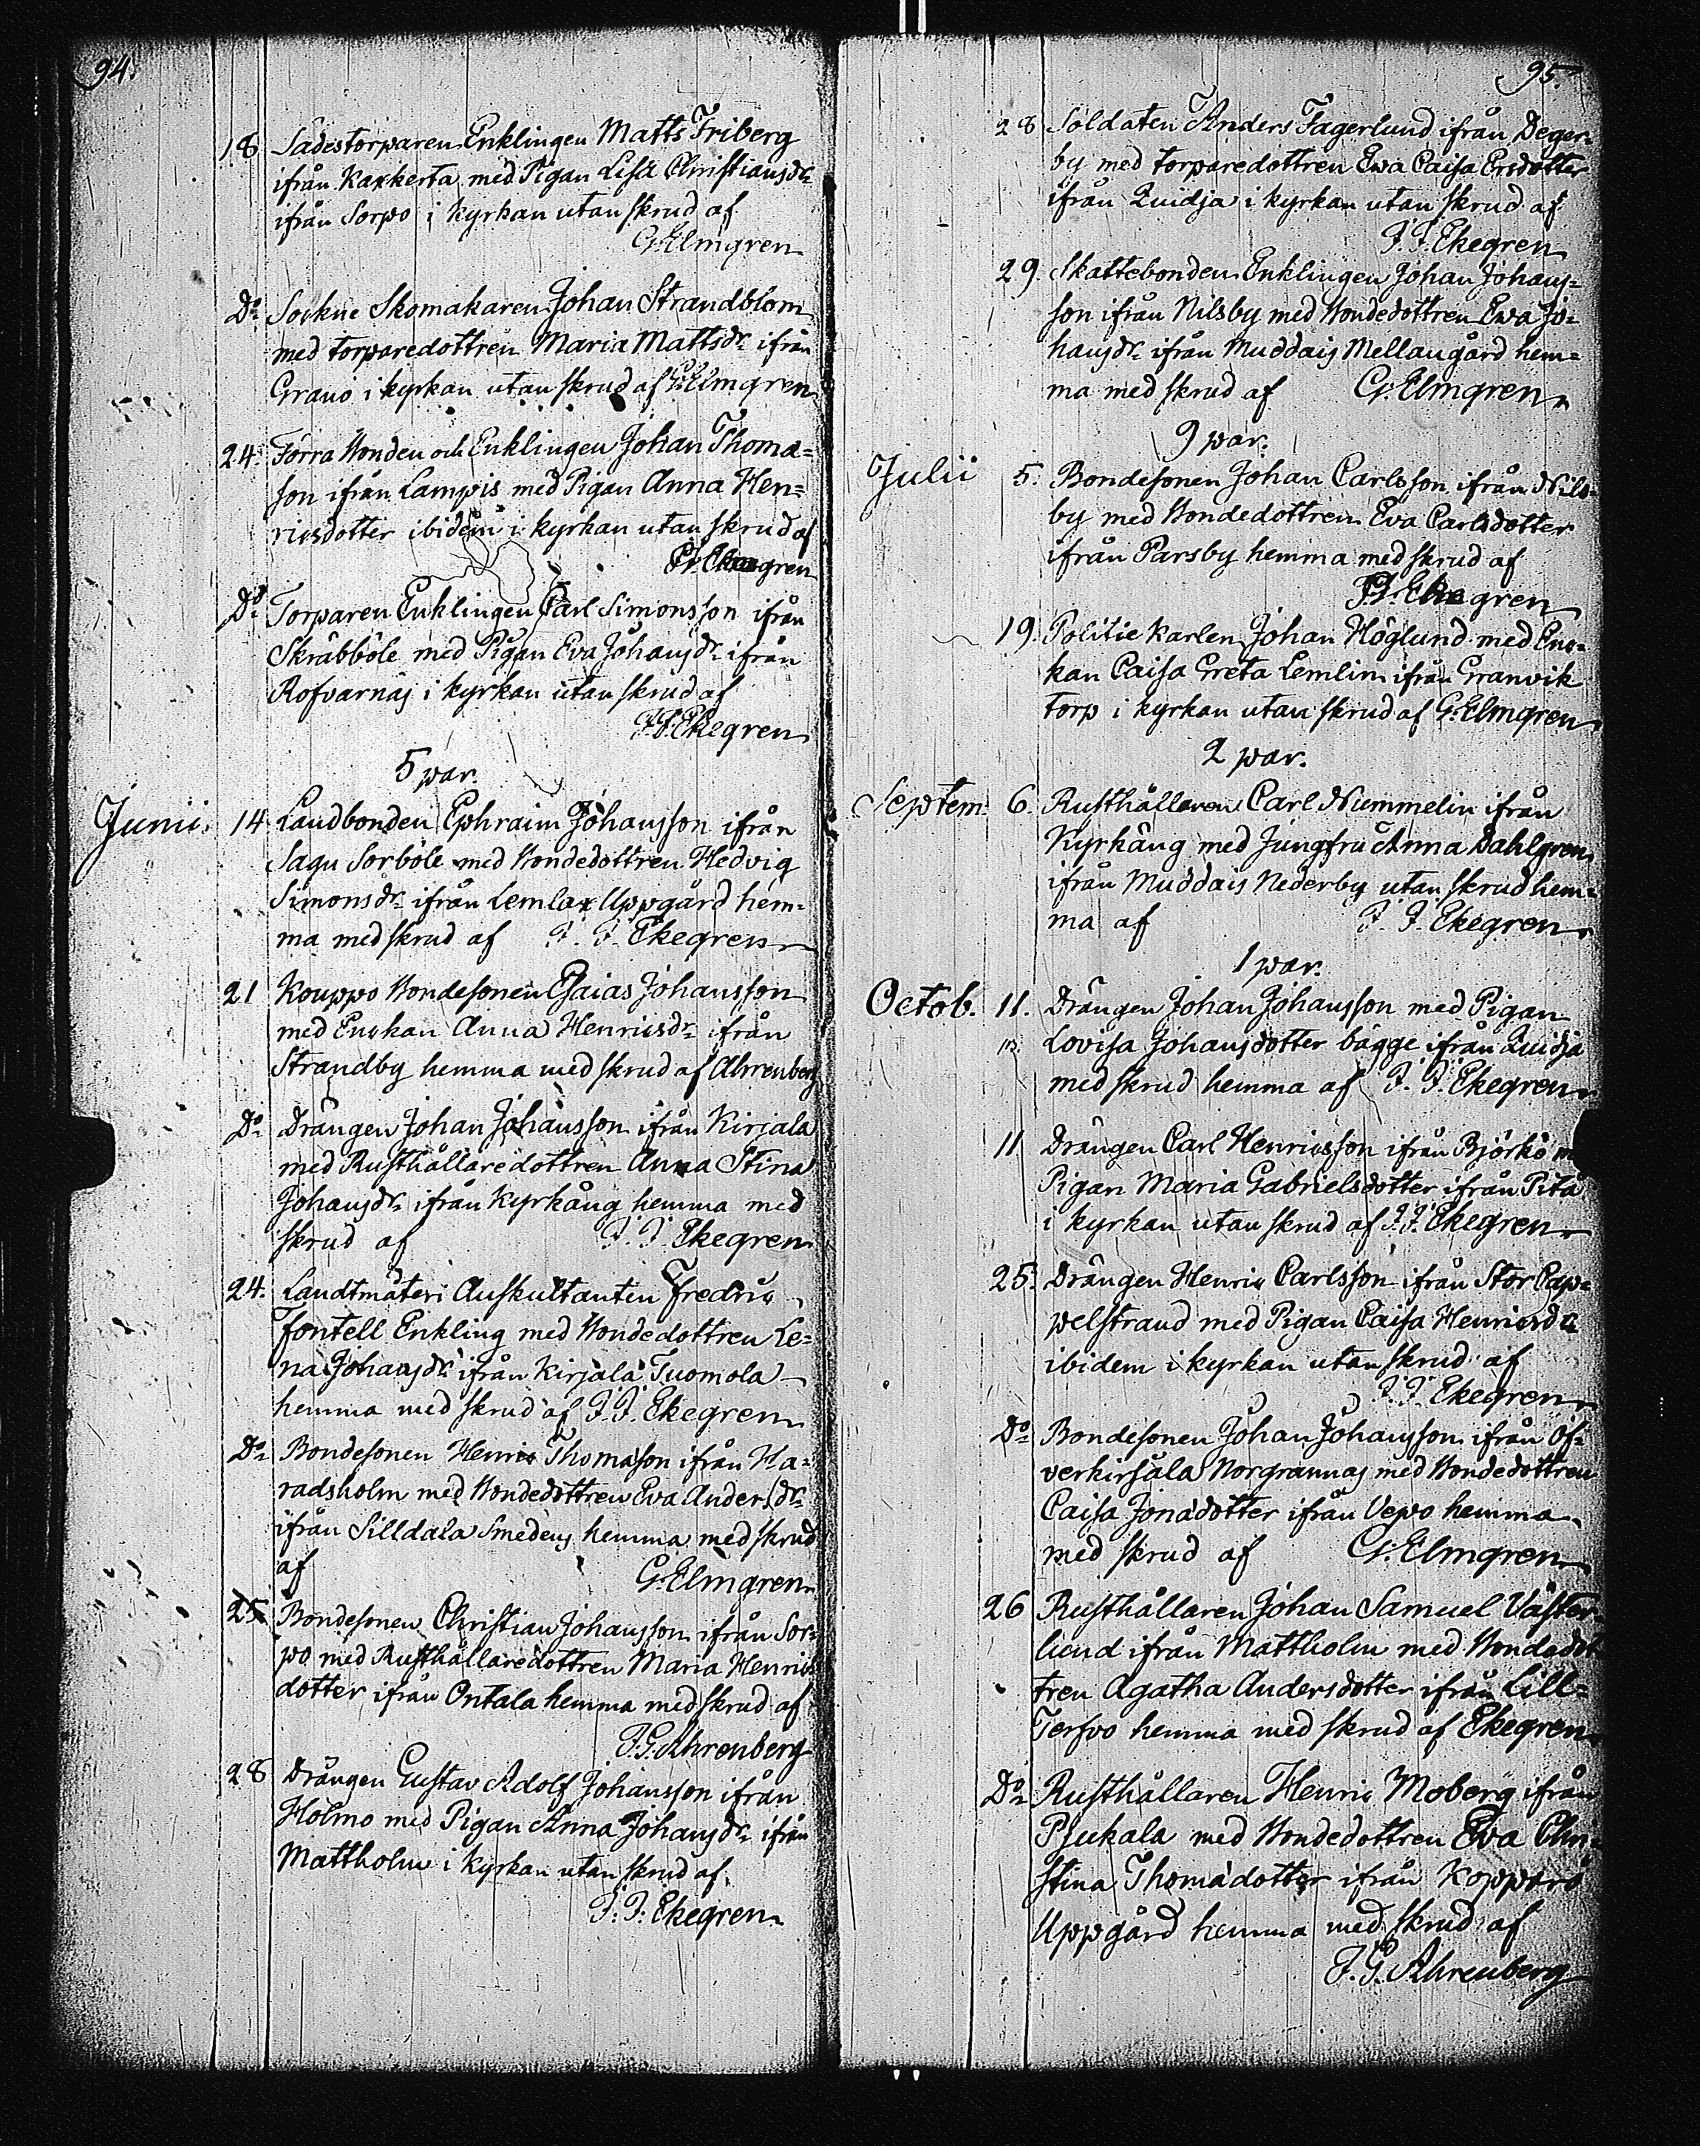 94.
18 Sädestorparen Enklingen Matts Friberg
ifrån Kaxkerta med Pigan Lisa Christiansdr
ifrån Sorpo i kyrkan utan skrud af
G. Elmgren
Do Sockne Skomakaren Johan Strandblom
med torparedottren Maria Mattsdr ifrån
Granö i kyrkan utan skrud af G. Elmgren
24. Förra Bonden och Enklingen Johan Thoma=
son ifrån Lampis med Pigan Anna Hen=
ricsdotter ibidem i kyrkan utan skrud af
Ekegren
Do Torparen Enklingen Carl Simonsson ifrån
Skräbböle med Pigan Eva Johansdr ifrån
Rofvarnäs i kyrkan utan skrud af
F. F. Ekegren
5 par.
Junii. 14 Landbonden Ephraim Johansson ifrån
Sagu Sorböle med Bondedottren Hedvig
Simonsdr ifrån Lemlax Uppgård hem=
ma med skrud af F. F. Ekegren
21 Kouppo Bondesonen Esaias Johansson
med Enkan Anna Henricsdr ifrån
Strandby hemma med skrud af Ahrenberg
Do Drängen Johan Johansson ifrån Kirjala
med Rusthållaredottren Anna Stina
Johansdr ifrån Kyrkäng hemma med
skrud af F. F. Ekegren
24. Landtmäteri Auskultanten Fredric
Fontell Enkling med Bondedottren Le=
na Johansdr ifrån Kirjala Tuomola
hemma med skrud af F. F. Ekegren
Do Bondesonen Henric Thomason ifrån Ha=
radsholm med Bondedottren Eva Andersdr
ifrån Silldala Smedens hemma med skrud
af G. Elmgren
25 Bondesonen Christian Johansson ifrån Sor=
po med Rusthållaredottren Maria Henrics
dotter ifrån Ontala hemma med skrud af
F. G. Ahrenberg
28 Drängen Gustav Adolf Johansson ifrån
Holmo med Pigan Anna Johansdr ifrån
Mattholm i kyrkan utan skrud af
F. F. Ekegren
95.
28 Soldaten Anders Fagerlund ifrån Deger=
by med torparedottren Ewa Caisa Ersdotter
ifrån Quidja i kyrkan utan skrud af
F. F. Ekegren
29. Skattebonden Enklingen Johan Johans=
son ifrån Nilsby med Bondedottren Ewa Jo=
hansdr ifrån Muddais Mellangård hem=
ma med skrud af G. Elmgren
9 par.
Julii 5. Bondesonen Johan Carlsson ifrån Nils=
by med Bondedottren Eva Carlsdotter
ifrån Parsby hemma med skrud af
F. F. Ekegren
19. Politie Karlen Johan Höglund med Enc=
kan Caisa Greta Lemlin ifrån Granvik
torp i kyrkan utan skrud af G. Elmgren
2 par.
Septem: 6. Rusthållaren Carl Nummelin ifrån
Kyrkäng med Jungfru Anna Dahlgren
ifrån Muddais Nederby utan skrud hem=
ma af F. F. Ekegren
1 par.
Octob. 11. Drängen Johan Johansson med Pigan
Lovisa Johansdotter bägge ifrån Quidja
med skrud hemma af F. F. Ekegren
11 Drängen Carl Henricsson ifrån Björkö
Pigan Maria Gabrielsdotter ifrån Pita
i kyrkan utan skrud af F. F. Ekegren
25. Drängen Henric Carlsson ifrån Stor Pap=
pelstrand med Pigan Caisa Henricsdr
ibidem i kyrkan utan skrud af
F. F. Ekegren
Do Bondesonen Johan Johansson ifrån Öf=
verkirjala Norgrannas med Bondedottren
Caisa Jonadotter ifrån Vepo hemma
med skrud af G. Elmgren
26 Rusthållaren Johan Samuel Väster=
lund ifrån Mattholm med Bondedot
tren Agatha Andersdotter ifrån Lill=
Terfvo hemma med skrud af Ekegren
Do Rusthållaren Henric Moberg ifrån
Pjukala med Bondedottren Eva Chri=
stina Thomadotter ifrån Kopparö
Uppgård hemma med skrud af
F. G. Ahrenberg